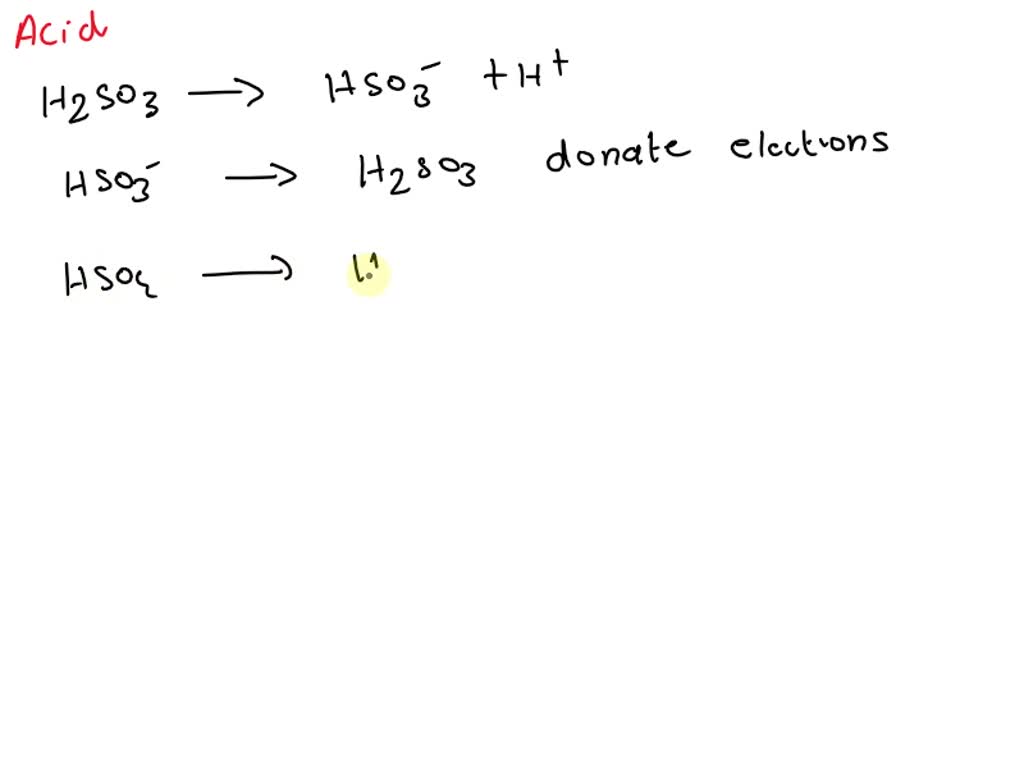 Acid
H2SO3 → HSO3⁻ + H⁺
HSO3⁻ → H2SO3 donate electrons
HSO4 →